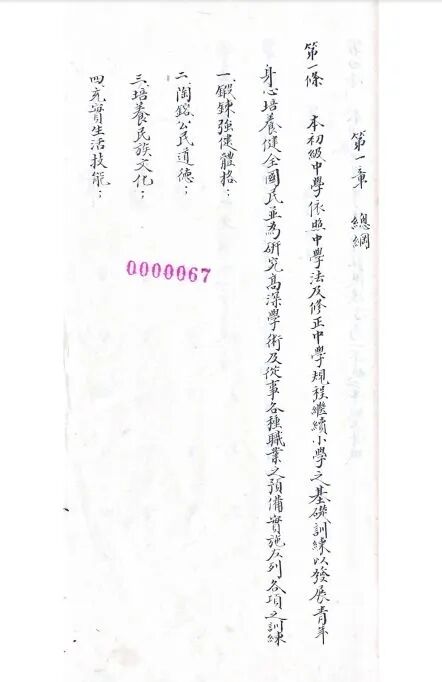 第一章 總綱
第一條 本初級中學依照中學法及修正中學規程繼續小學之基礎訓練以發展青年
身心培養健全國民並為研究高深學術及從事各種職業之預備實施左列各項之訓練
一、鍛鍊強健體格；
二、陶鎔公民道德；
三、培養民族文化；
四、充實生活技能；
0000067